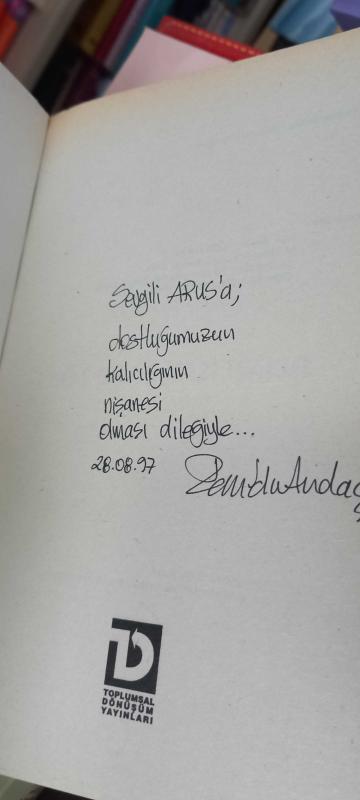 Sevgili ARUS'a;
dostluğumuzun
kalıcılığının
nişanesi
olması dileğiyle...
28.08.97
TOPLUMSAL
DÖNÜŞÜM
YAYINLARI